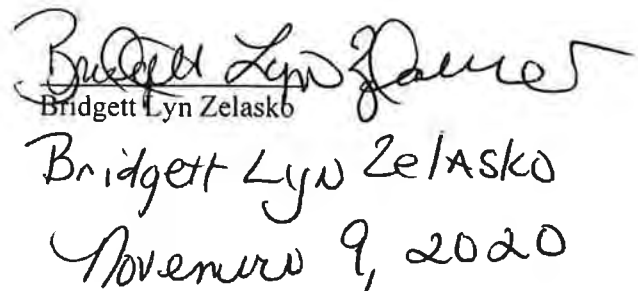 Bridgett Lyn
Bridgett Lyn Zelasko
Bridgett Lyn ZelAsko
November 9, 2020